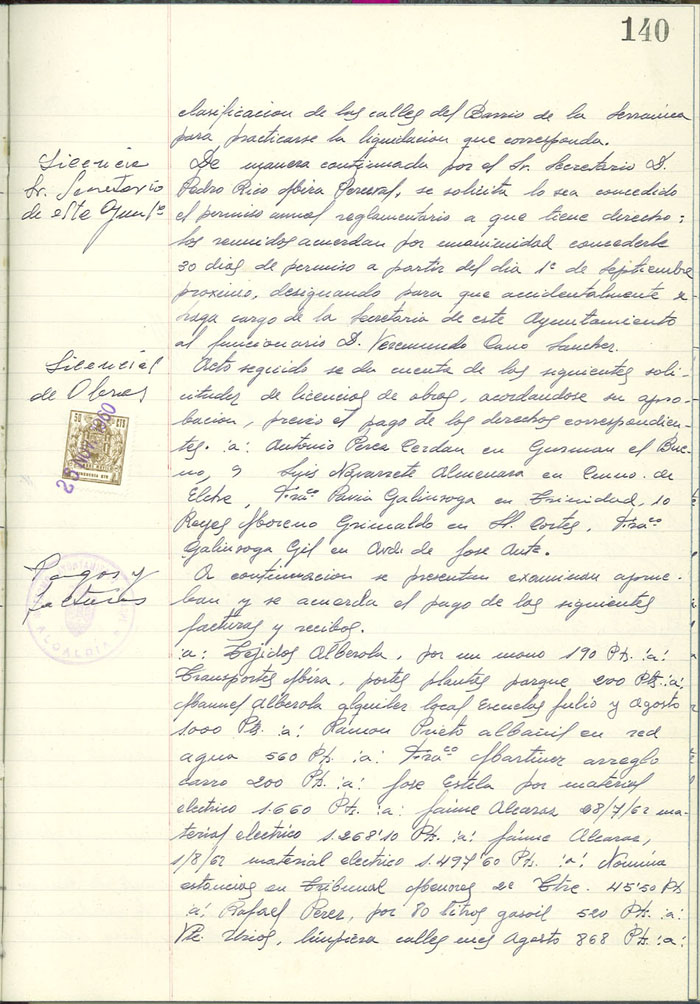 140
clasificacion de las calles del Barrio de la Serranica
para practicarse la liquidacion que corresponda.
Licencia
Sr. Secretario
de este Ayunt.º
De manera continuada por el Sr. Secretario D.
Pedro Rico Mira se solicita le sea concedido
el permiso anual reglamentario a que tiene derecho:
los reunidos acuerdan por unanimidad concederle
30 dias de permiso a partir del dia 1º de Septiembre
proximo, designando para que accidentalmente se
haga cargo de la Secretaria de este Ayuntamiento
al funcionario D. Veremundo Cano Sanchez.
Licencias
de Obras
Acto seguido se da cuenta de las siguientes soli-
citudes de licencias de obras, acordandose su apro-
bacion, previo el pago de los derechos correspondien-
tes. :a: Antonio Perea Cerdan en Guzman el Bue-
no, 9 Luis Navarrete Almenara en Camno. de
Elche, Fracº Pavia Galinsoga en Trinidad, 10
Reyes Moreno Grimaldo en H. Cortes, Fracº
Galinsoga Gil en Avd. de Jose Antº.
50 CTS
25 NOV. 1960
Pagos y
facturas
ALCALDIA
A continuacion se presentan examinan aprue-
ban y se acuerda el pago de las siguientes
facturas y recibos.
:a: Tejidos Alberola, por un mono 190 Pts. :a:
Transportes Mira, portes plantes parque 200 Pts. :a:
Manuel Alberola alquiler local Escuelas Julio y Agosto
1000 Pts. :a: Ramon Prieto albañil en red
agua 560 Pts. :a: Fracº Martinez arreglo
carro 200 Pts. :a: Jose Estela por material
electrico 1.660 Pts. :a: Jaime Alcaraz 28/7/62 ma-
terial electrico 1.268'10 Pts. :a: Jaime Alcaraz,
1/8/62 material electrico 1.497'60 Pts. :a: Nomina
estancias en Tribunal Menores 2º Ttre. 45'50 Pts
:a: Rafael Perez, por 80 litros gasoil 520 Pts. :a:
Vte. Urios, limpieza calles mes Agosto 868 Pts. :a: